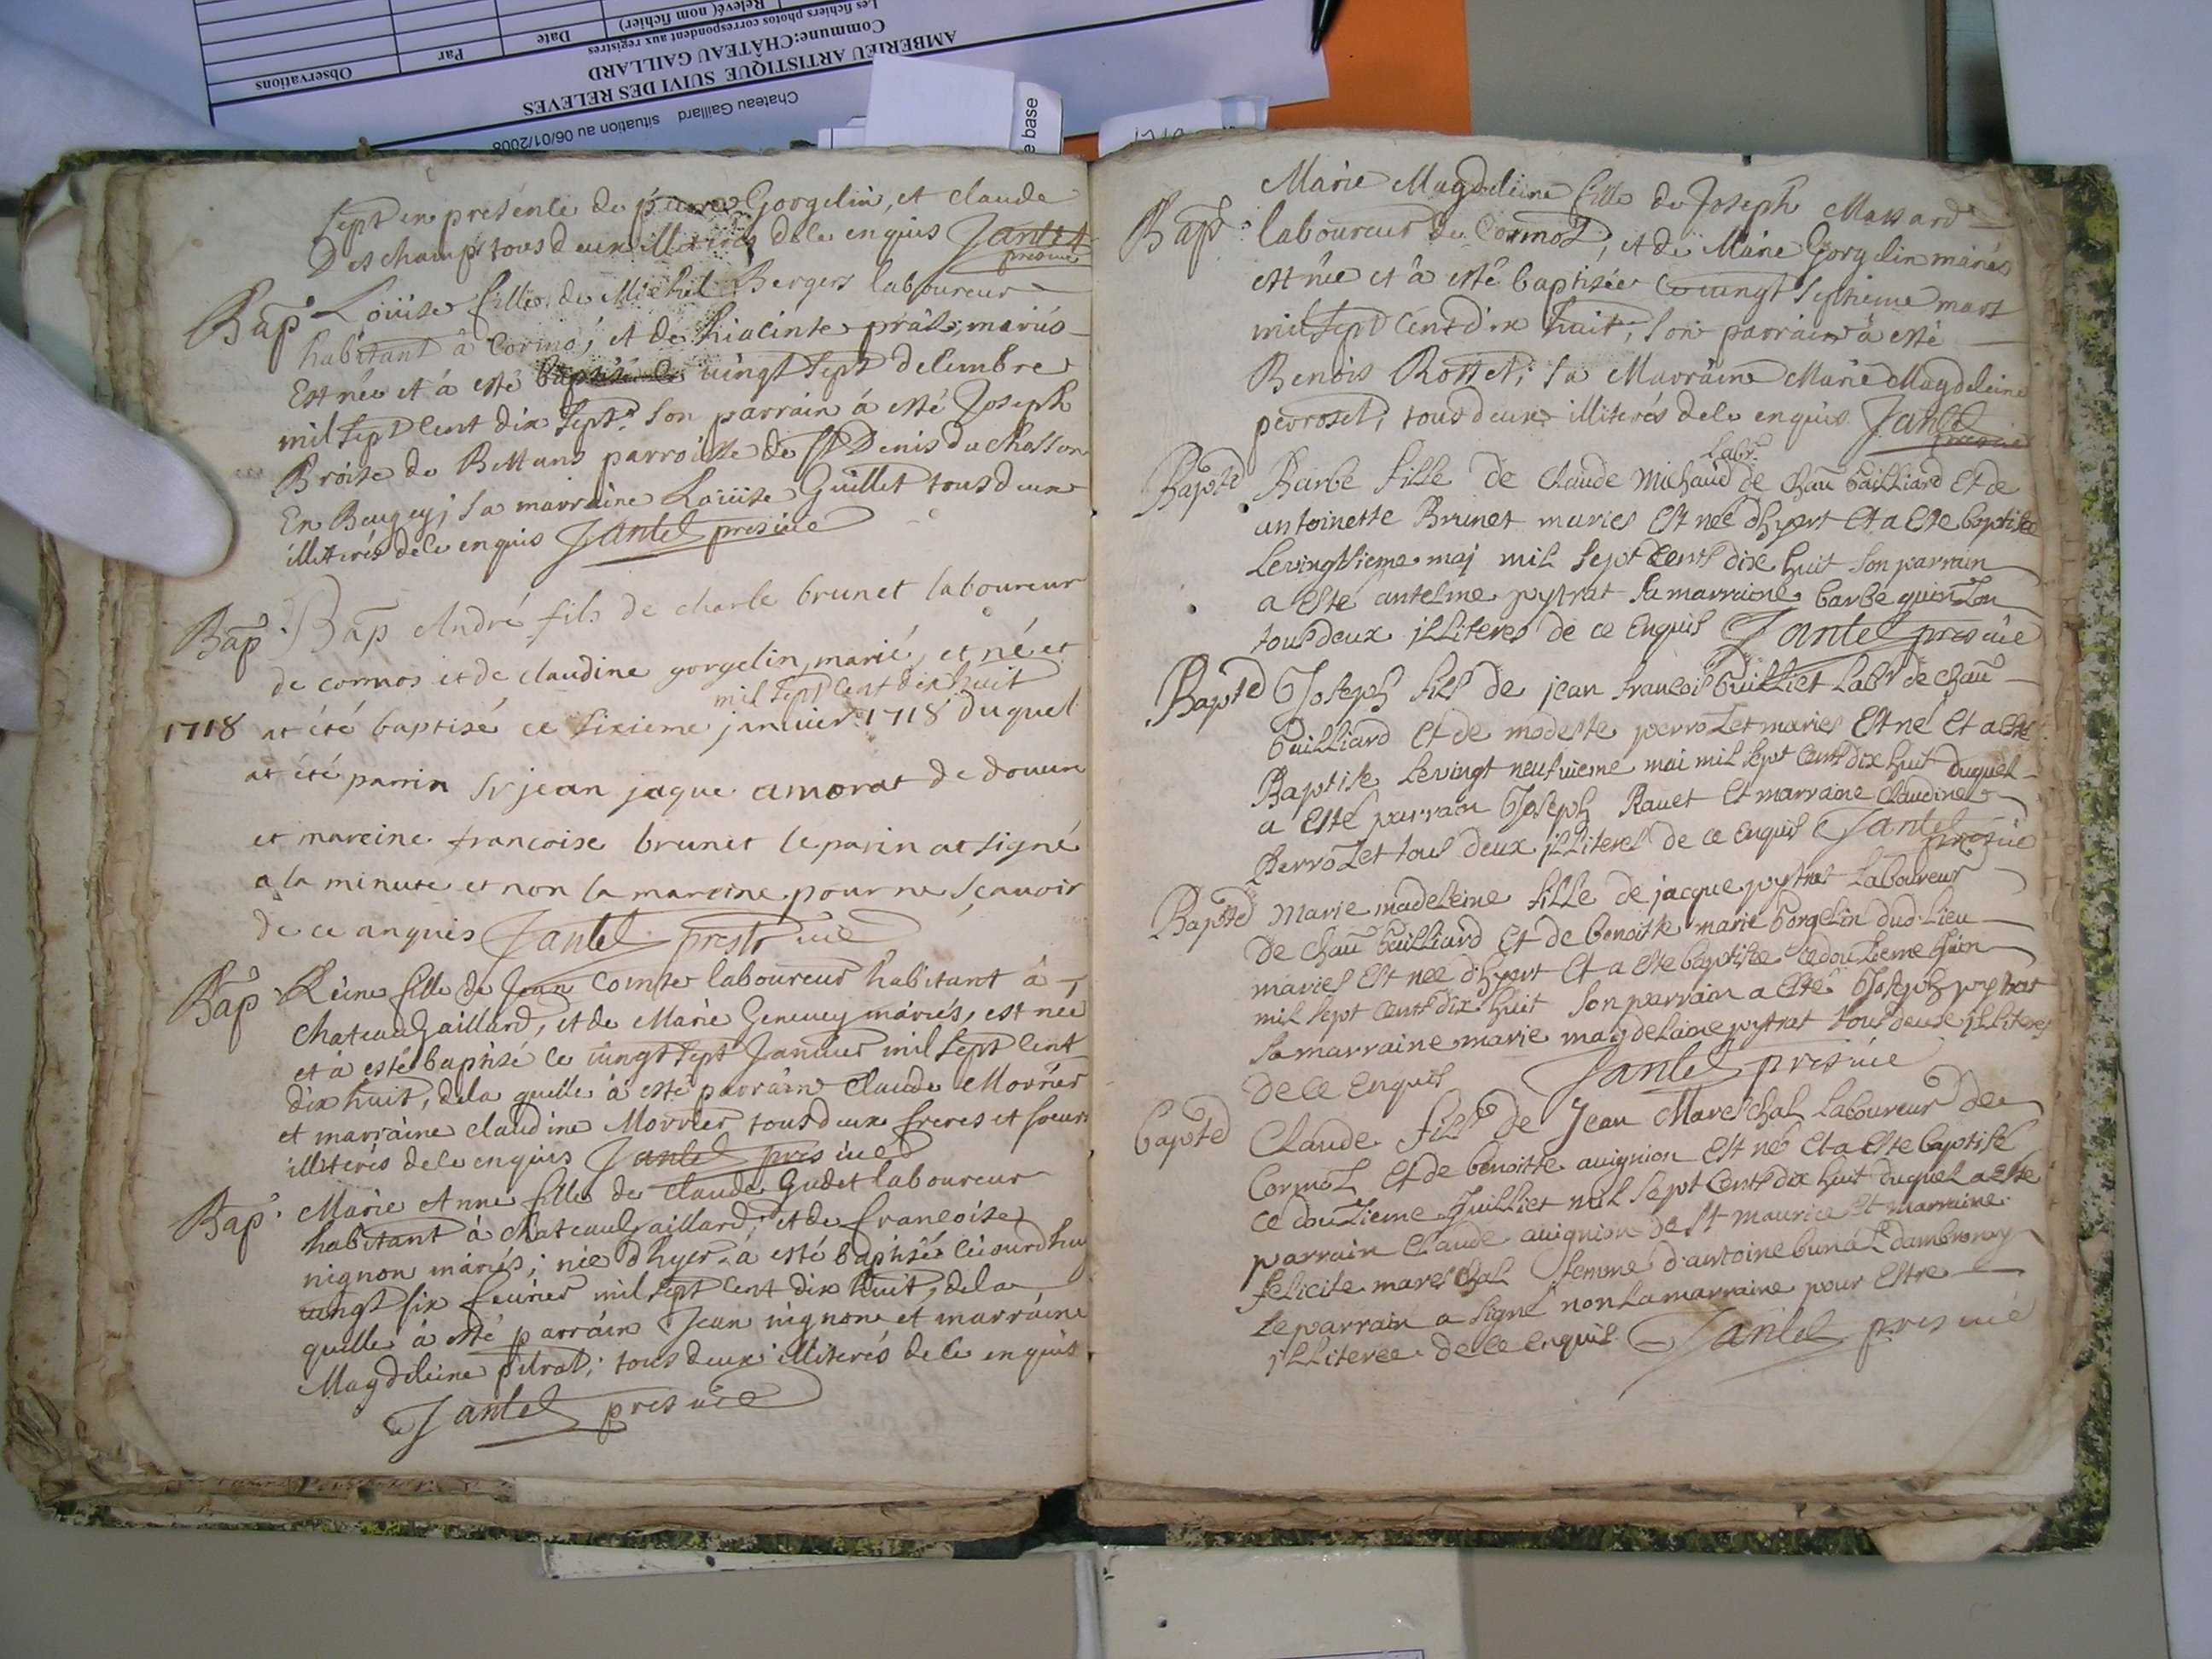 Observations
Par
Date
Relevé( nom fichier)
Les fichiers photos correspondent aux registres
Commune:CHÂTEAU GAILLARD
AMBERIEU ARTISTIQUE SUIVI DES RELEVES
Chateau Gaillard situation au 06/01/2008
e base
sept en presence de pierre Gorgelin, et claude
Deschamp tous deux illiterés de ce enquis Jantel
pres vic
Bap. Loüise fille de Michel Bergers laboureur
habitant à Cormo, et de hiacinte prâst, mariés
Est née et à esté baptisé ce vingt sept decembre
mil sept cent dix sept. son parrain à esté Joseph
Broise de Bettans parroisse de St Denis du chosson
En Beugey; sa marraine Loüise Guillet tous deux
illiterés de ce enquis Jantel pres vice
Bap. Bap André fils de charle brunet laboureur
de cormos et de claudine gorgelin, marié, et né et
mil sept cent dix huit
1718 at été baptisé ce sixieme janvier 1718 duquel
at été parrin Sr jean jaque amorat de douure
et mareine francoise brunet le parin at signé
a la minute et non la mareine pour ne sçavoir
de ce anquis Jantel prestr vic
Bap. Reine fille de Jean Comte laboureur habitant à
chateau Gaillard, et de Marie Genevey mariés, est née
et à esté baptisé ce vingt sept Janvier mil sept cent
dix huit, de la quelle à esté parrain Claude Morrier
et marraine claudine Morrier tous deux freres et soeurs
illiterés de ce enquis Jantel pres vic
Bap. Marie Anne fille de Claude Gudet laboureur
habitant à chateau Gaillard; et de francoise
nignon mariés; née d'hyer à esté baptisée ce jourdhuy
vingt six fevrier mil sept cent dix huit, de la
quelle à esté parrain Jean nignon et marraine
Magdeleine pitrat; tous deux illiterés de ce enquis
Jantel pres vic
Marie Magdeleine fille de Joseph Massard
Bap. laboureur de Cormoz, et de Marie Gorgelin mariés
est née et à esté baptisée ce vingt septieme mars
mil sept cent dix huit, son parrain à esté
Benois Rosset; sa Marraine Marie Magdeleine
perroset; tous deux illiterés de ce enquis Jantel
pres vic
Labr.
Bapte Barbe fille de claude Michaud de Chau Gailliard Et de
antoinette Brunet mariés Est née d'hyert Et a Este baptisée
Le vingtsieme maj mil sept cents dixe huit son parrain
a Esté antelme pytrat sa marraine barbe guinzon
tous deux jlliteres de ce Enquis Jantel pres vic
Bapted Joseph fils de jean francois Guilliet Labr de Chau
Gailliard Et de modeste perrozet mariés Est né Et a Esté
Baptise Le vingt neufvieme mai mil sept cents dix huit duquel
a Esté parrain Joseph Ravet Et marraine Claudine
Perrozet tous deux jlliteres de ce Enquis Jantel
pres vic
Bapted Marie madeleine fille de jacque pytrat Laboureur
De Chau Gailliard Et de benoitte marie Gorgelin dud. Lieu
mariés Est née d'hyert Et a Este baptisée ce douzieme Juin
mil sept cents dix huit son parrain a Esté Joseph pytrat
sa marraine marie magdelaine pytrat tous deux jlliteres
de ce Enquis Jantel pres vic
bapted Claude fils de Jean Mareschal Laboureur de
Cormoz Et de benoitte avignion Est né Et a Este baptisé
ce douzieme Juilliet mil sept cents dix huit duquel a Esté
parrain claude avignion de St maurice Et marraine
felicite mareschal femme d'antoine bunaz dambrony
Le parrain a signé non la marraine pour Estre
jlliteree de ce Enquis Jantel pres vic